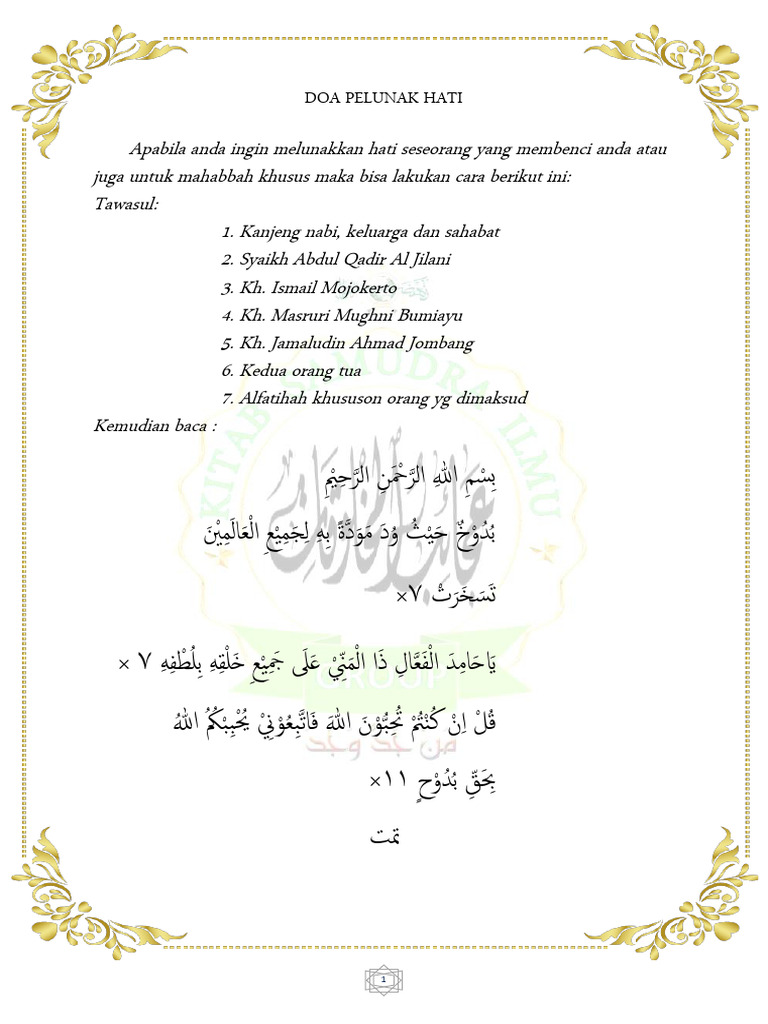 DOA PELUNAK HATI
Apabila anda ingin melunakkan hati seseorang yang membenci anda atau
juga untuk mahabbah khusus maka bisa lakukan cara berikut ini:
Tawasul:
1. Kanjeng nabi, keluarga dan sahabat
2. Syaikh Abdul Qadir Al Jilani
3. Kh. Ismail Mojokerto
4. Kh. Masruri Mughni Bumiayu
5. Kh. Jamaludin Ahmad Jombang
6. Kedua orang tua
7. Alfatihah khususon orang yg dimaksud
Kemudian baca :
بِسْمِ اللهِ الرَّحْمَنِ الرَّحِيْمِ
بُدُوْخٌ حَيْثُ وُدَ مَوَدَّةً بِهِ لِجَمِيْعِ الْعَالَمِيْنَ
تَسَخَرَتْ ٧×
يَاحَامِدَ الْفَعَّالِ ذَا الْمَنِّيْ عَلَى جَمِيْعِ خَلْقِهِ بِلُطْفِهِ ٧ ×
قُلْ اِنْ كُنْتُمْ تُحِبُّوْنَ اللهَ فَاتَّبِعُوْنِيْ يُحْبِبْكُمُ اللهُ
بِحَقِّ بُدُوْحٍ ١١×
تمت
KITAB SAMUDRA ILMU
GROUP
مَن جَد وجَد
1